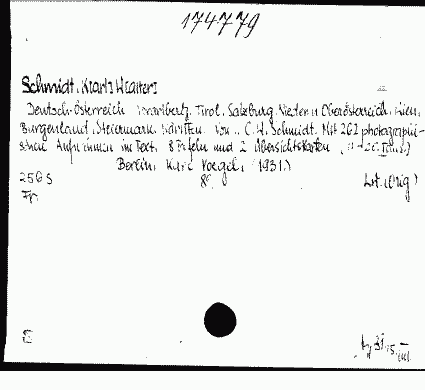 174779
Schmidt, K[arl] W[alter]
Deutsch-Österreich Vorarlberg, Tirol, Salzburg, Nieder- u Oberösterreich, Wien,
Burgenland, Steiermark, Kärnten. Von .. C. W. Schmidt. Mit 262 photographi-
schen Aufnahmen im Text, 8 Tafeln und 2 Übersichtskarten
Berlin, Kurt Voegel, (1931.)
256 S 8°